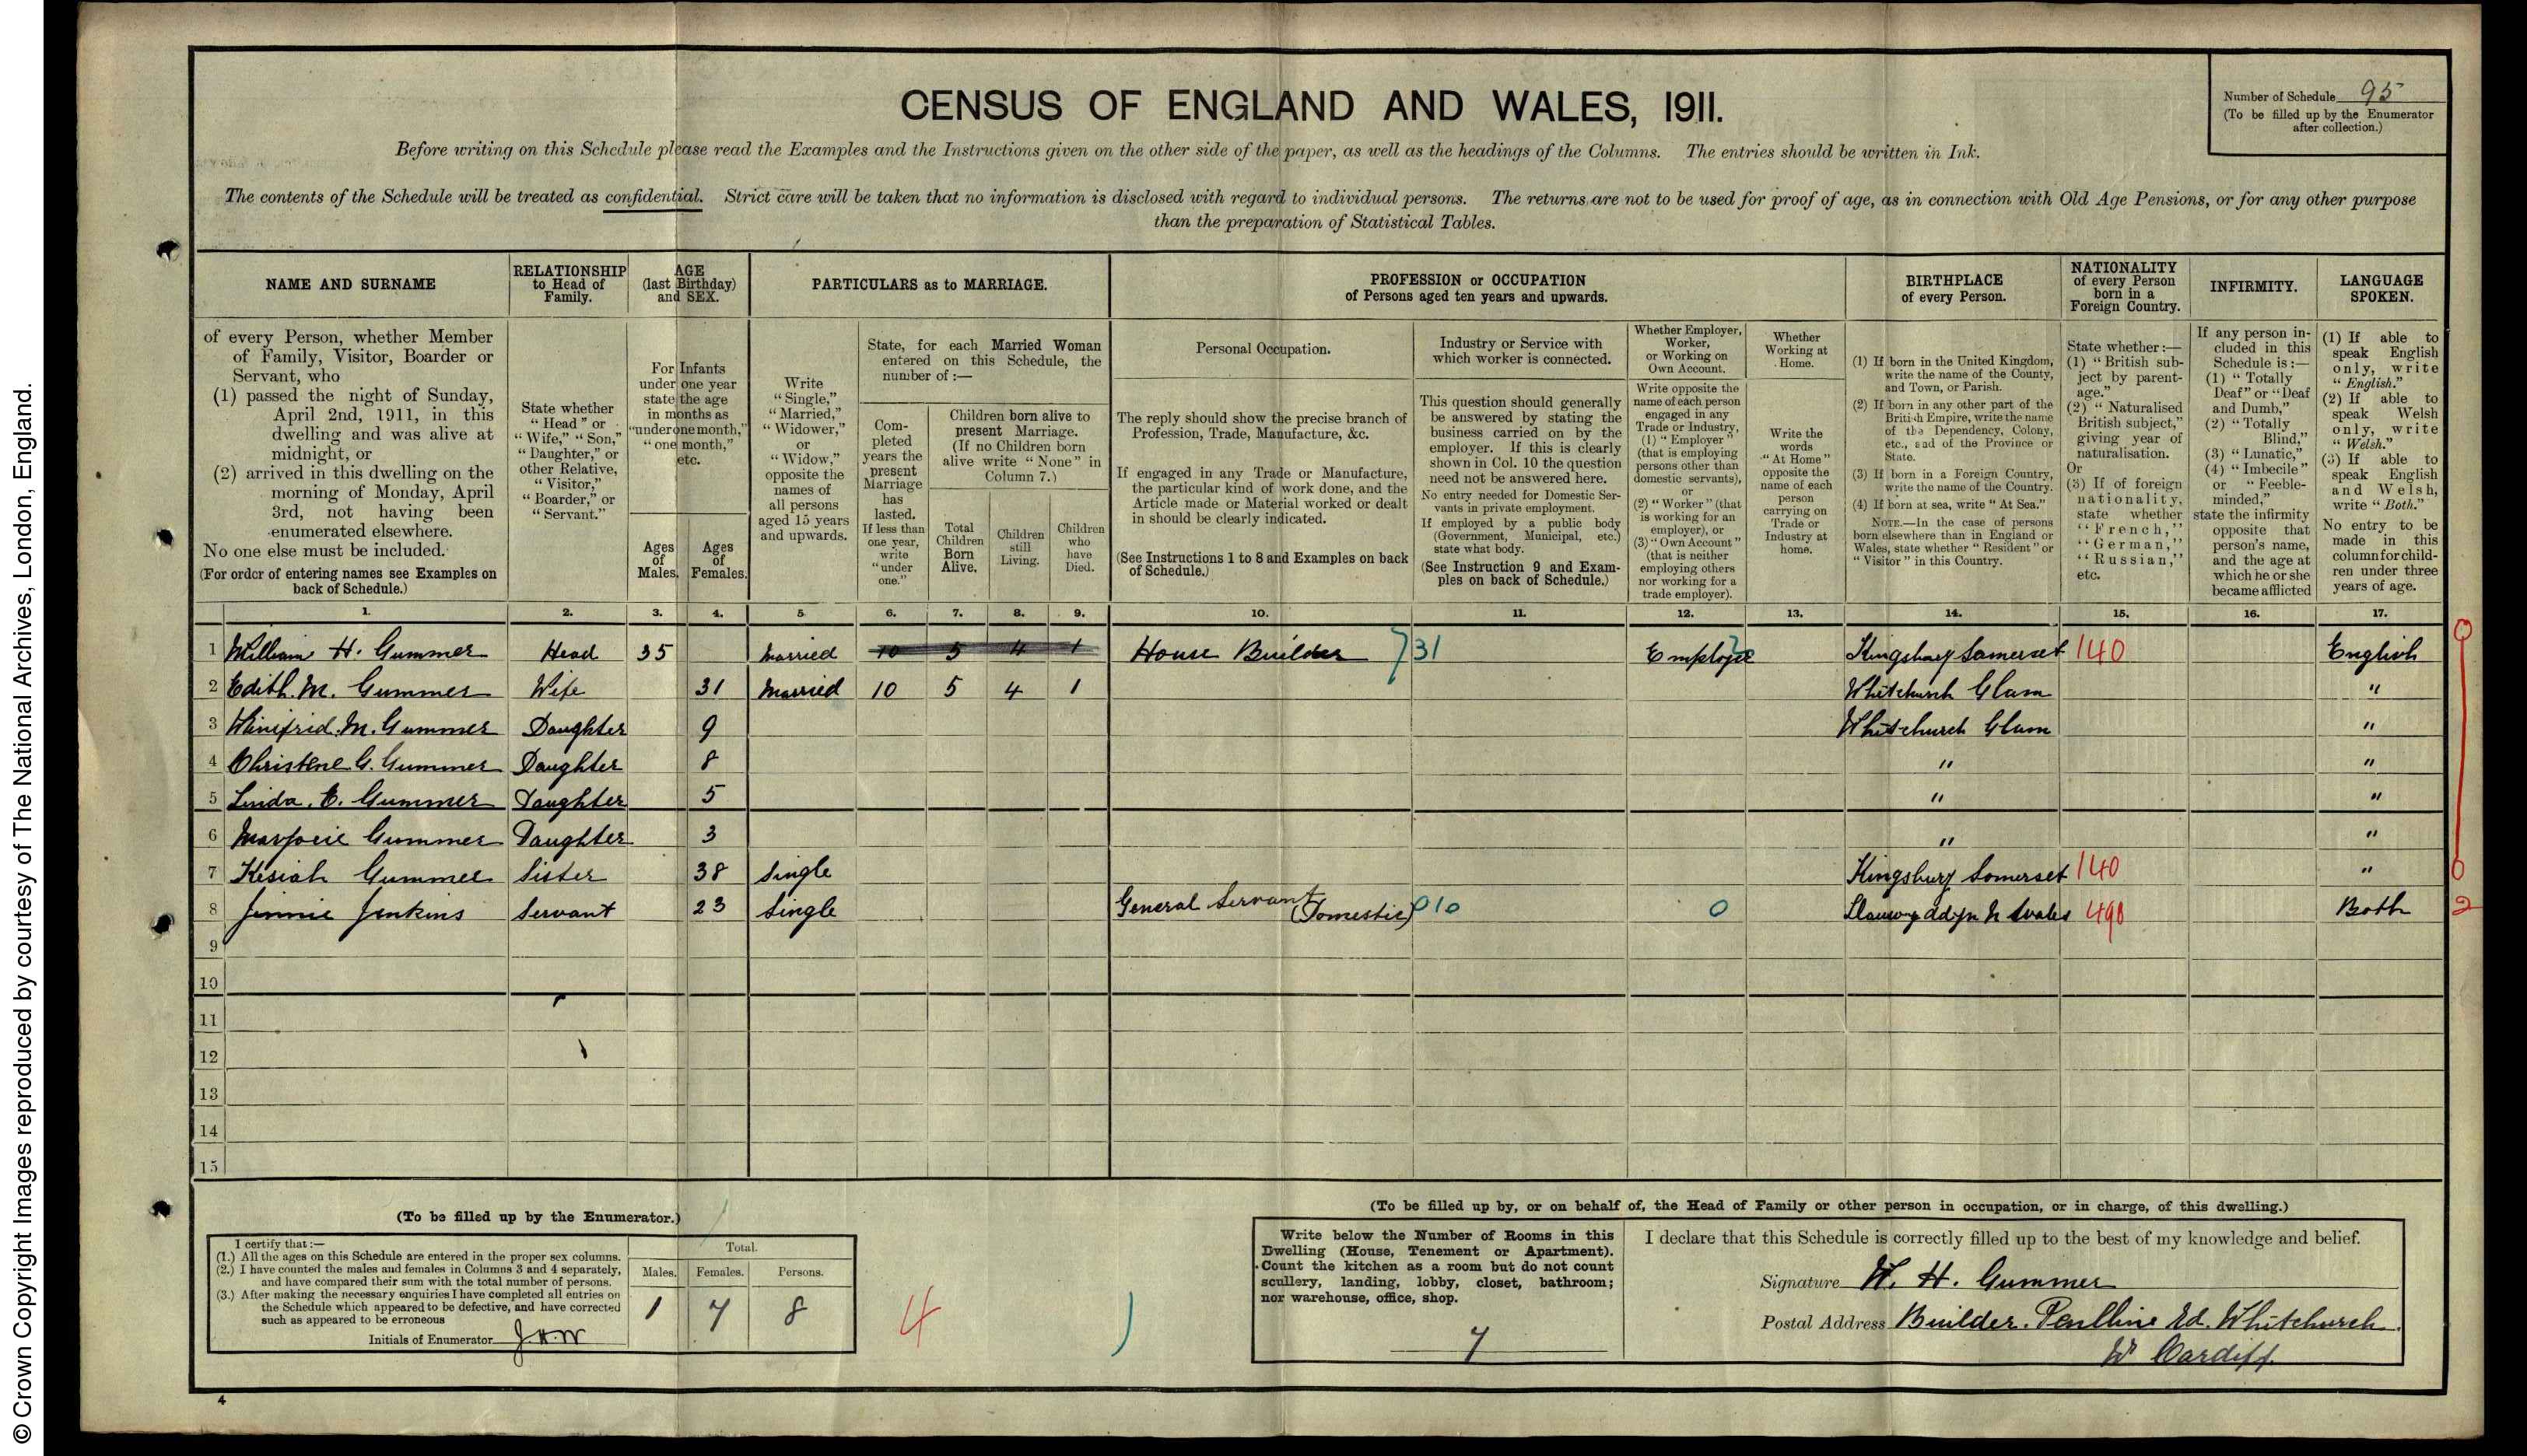 © Crown Copyright Images reproduced by courtesy of The National Archives, London, England.
CENSUS OF ENGLAND AND WALES, 1911.
Number of Schedule 95
(To be filled up by the Enumerator
after collection.)
Before writing on this Schedule please read the Examples and the Instructions given on the other side of the paper, as well as the headings of the Columns. The entries should be written in Ink.
The contents of the Schedule will be treated as confidential. Strict care will be taken that no information is disclosed with regard to individual persons. The returns are not to be used for proof of age, as in connection with Old Age Pensions, or for any other purpose
than the preparation of Statistical Tables.
NAME AND SURNAME
of every Person, whether Member
of Family, Visitor, Boarder or
Servant, who
(1) passed the night of Sunday,
April 2nd, 1911, in this
dwelling and was alive at
midnight, or
(2) arrived in this dwelling on the
morning of Monday, April
3rd, not having been
enumerated elsewhere.
No one else must be included.
(For order of entering names see Examples on
back of Schedule.)
RELATIONSHIP
to Head of
Family.
State whether
"Head" or
"Wife," "Son,"
"Daughter," or
other Relative,
"Visitor,"
"Boarder," or
"Servant."
AGE
(last Birthday)
and SEX.
For Infants
under one year
state the age
in months as
"under one month,"
"one month,"
etc.
Ages
of
Males.
Ages
of
Females.
PARTICULARS as to MARRIAGE.
Write
"Single,"
"Married,"
"Widower,"
or
"Widow,"
opposite the
names of
all persons
aged 15 years
and upwards.
State, for each Married Woman
entered on this Schedule, the
number of :—
Com-
pleted
years the
present
Marriage
has
lasted.
If less than
one year,
write
"under
one."
Children born alive to
present Marriage.
(If no Children born
alive write "None" in
Column 7.)
Total
Children
Born
Alive.
Children
still
Living.
Children
who
have
Died.
PROFESSION or OCCUPATION
of Persons aged ten years and upwards.
Personal Occupation.
The reply should show the precise branch of
Profession, Trade, Manufacture, &c.
If engaged in any Trade or Manufacture,
the particular kind of work done, and the
Article made or Material worked or dealt
in should be clearly indicated.
(See Instructions 1 to 8 and Examples on back
of Schedule.)
Industry or Service with
which worker is connected.
This question should generally
be answered by stating the
business carried on by the
employer. If this is clearly
shown in Col. 10 the question
need not be answered here.
No entry needed for Domestic Ser-
vants in private employment.
If employed by a public body
(Government, Municipal, etc.)
state what body.
(See Instruction 9 and Exam-
ples on back of Schedule.)
Whether Employer,
Worker,
or Working on
Own Account.
Write opposite the
name of each person
engaged in any
Trade or Industry,
(1) "Employer"
(that is employing
persons other than
domestic servants),
or
(2) "Worker" (that
is working for an
employer), or
(3) "Own Account"
(that is neither
employing others
nor working for a
trade employer).
Whether
Working at
Home.
Write the
words
"At Home"
opposite the
name of each
person
carrying on
Trade or
Industry at
home.
BIRTHPLACE
of every Person.
(1) If born in the United Kingdom,
write the name of the County,
and Town, or Parish.
(2) If born in any other part of the
British Empire, write the name
of the Dependency, Colony,
etc., and of the Province or
State.
(3) If born in a Foreign Country,
write the name of the Country.
(4) If born at sea, write "At Sea."
NOTE.—In the case of persons
born elsewhere than in England or
Wales, state whether "Resident" or
"Visitor" in this Country.
NATIONALITY
of every Person
born in a
Foreign Country.
State whether :—
(1) "British sub-
ject by parent-
age."
(2) "Naturalised
British subject,"
giving year of
naturalisation.
Or
(3) If of foreign
nationality,
state whether
"French,"
"German,"
"Russian,"
etc.
INFIRMITY.
If any person in-
cluded in this
Schedule is :—
(1) "Totally
Deaf" or "Deaf
and Dumb,"
(2) "Totally
Blind,"
(3) "Lunatic,"
(4) "Imbecile"
or "Feeble-
minded,"
state the infirmity
opposite that
person's name,
and the age at
which he or she
became afflicted
LANGUAGE
SPOKEN.
(1) If able to
speak English
only, write
"English."
(2) If able to
speak Welsh
only, write
"Welsh."
(3) If able to
speak English
and Welsh,
write "Both."
No entry to be
made in this
column for child-
ren under three
years of age.
1. 2. 3. 4. 5 6. 7. 8. 9. 10. 11. 12. 13. 14. 15. 16. 17.
1 William H. Gummer Head 35 Married 10 5 4 1 House Builder 731 Employer Kingsbury Somerset 140 English 0
2 Edith. M. Gummer Wife 31 Married 10 5 4 1 Whitchurch Glam "
3 Winifrid. M. Gummer Daughter 9 Whitchurch Glam "
4 Christene G. Gummer Daughter 8 " "
5 Linda. E. Gummer Daughter 5 " "
6 Marjorie Gummer Daughter 3 " "
7 Kesiah Gummer Sister 38 Single Kingsbury Somerset 140 " 0
8 Jinnie Jenkins Servant 23 Single General Servant (Domestic) 010 0 N Wales 490 Both 2
9
10
11
12
13
14
15
(To be filled up by the Enumerator.)
I certify that :—
(1.) All the ages on this Schedule are entered in the proper sex columns.
(2.) I have counted the males and females in Columns 3 and 4 separately,
and have compared their sum with the total number of persons.
(3.) After making the necessary enquiries I have completed all entries on
the Schedule which appeared to be defective, and have corrected
such as appeared to be erroneous
Initials of Enumerator J.H.W
Total.
Males. Females. Persons.
1 7 8
4
(To be filled up by, or on behalf of, the Head of Family or other person in occupation, or in charge, of this dwelling.)
Write below the Number of Rooms in this
Dwelling (House, Tenement or Apartment).
Count the kitchen as a room but do not count
scullery, landing, lobby, closet, bathroom;
nor warehouse, office, shop.
7
I declare that this Schedule is correctly filled up to the best of my knowledge and belief.
Signature W. H. Gummer
Postal Address Builder. Penlline Rd. Whitchurch.
Nr Cardiff.
4